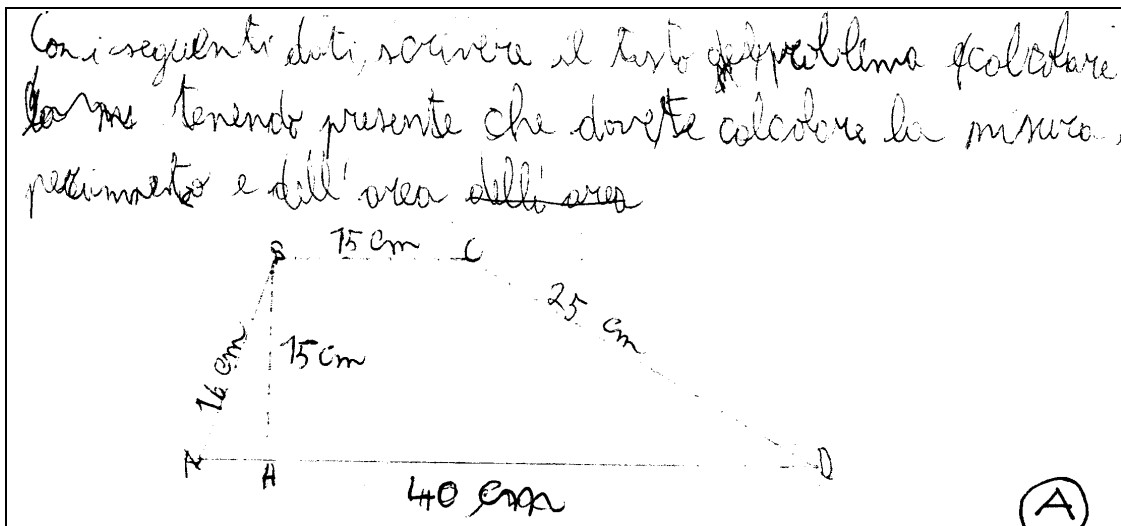 Con i seguenti dati, scrivere il testo del problema e calcolare
tenendo presente che dovete calcolare la misura
perimetro e dell'area delli area
B 15 cm C
25 cm
16 cm 15 cm
A H D
40 cm
A